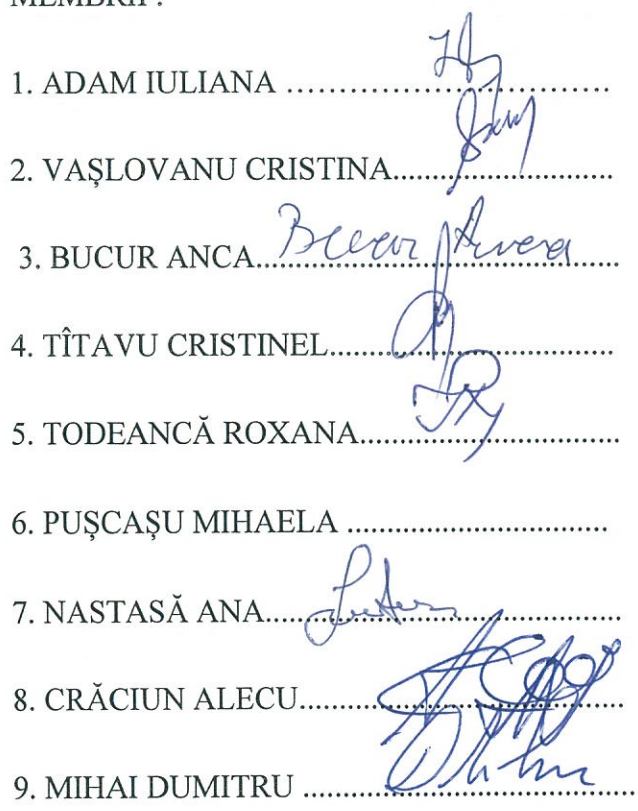 MEMBRII :
1. ADAM IULIANA ..................................
2. VAȘLOVANU CRISTINA............................
3. BUCUR ANCA.............................................. Bucur Anca
4. TÎTAVU CRISTINEL....................................
5. TODEANCĂ ROXANA.................................
6. PUȘCAȘU MIHAELA .................................
7. NASTASĂ ANA.............................................
8. CRĂCIUN ALECU.........................................
9. MIHAI DUMITRU ..........................................